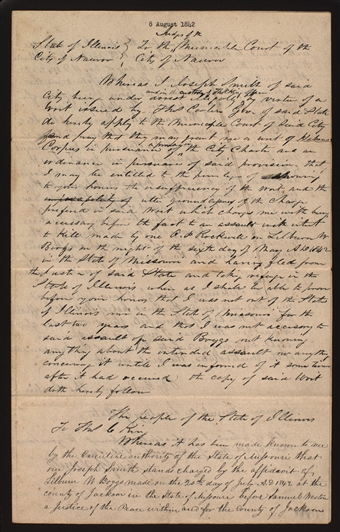 6 August 1842
Judge of the
State of Illinois } To the Municipal Court of the
City of Nauvoo } City of Nauvoo
Whereas I Joseph Smith of said
City being under arrest by virtue of a
Writ issued by Thos Carlin Gov. of said State
do hereby apply to the Municipal Court of said City
and pray that they may grant me a writ of Habeas
Corpus in of the City Charter and an
ordinance in pursuance of said provision, that
I may be entitled to the privilege of showing
to your honors the insufficiency of the writ, and the
utter groundlessness of the Charge
preferred in said Writ which charges me with being
accessary before the fact to an assault with intent
to kill made by one O. P. Rockwell on Lilburn W.
Boggs on the night of the sixth day of May A.D. 1842
in the State of Missouri and having fled from
the Justice of said State and taking refuge in the
State of Illinois, when as I shall be able to prove
before your honors that I was not out of the State
of Illinois nor in the State of Missouri for the
last two years and that I was not accessary to
said assault on said Boggs not knowing
anything about the intended assault or anything
concerning it until I was informed of it sometime
after it had occurred the copy of said Writ
doth hereby follow
The people of the State of Illinois
To Thos C King
Whereas it has been made known to me
by the Executive authority of the State of Missouri that
one Joseph Smith stands charged by the affidavit of
Lilburn W. Boggs made on the 20th day of July A.D. 1842 at the
county of Jackson in the State of Missouri before Samuel Weston
a Justice of the Peace within and for the County of Jackson